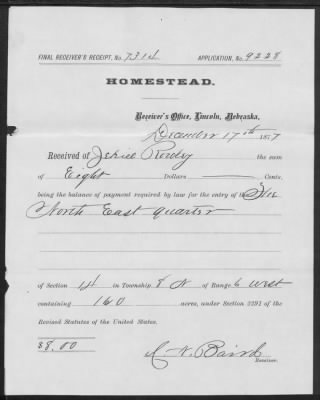 FINAL RECEIVER'S RECEIPT, No. 7314 APPLICATION, No. 9228
HOMESTEAD.
Receiver's Office, Lincoln, Nebraska,
December 17th 1877
Received of Roudy the sum
of Eight Dollars Cents,
being the balance of payment required by law for the entry of the The
North East quarter
of Section 14 in Township 8 N of Range 6 West
containing 160 acres, under Section 2291 of the
Revised Statutes of the United States.
$8.00
C. N. Baird
Receiver.